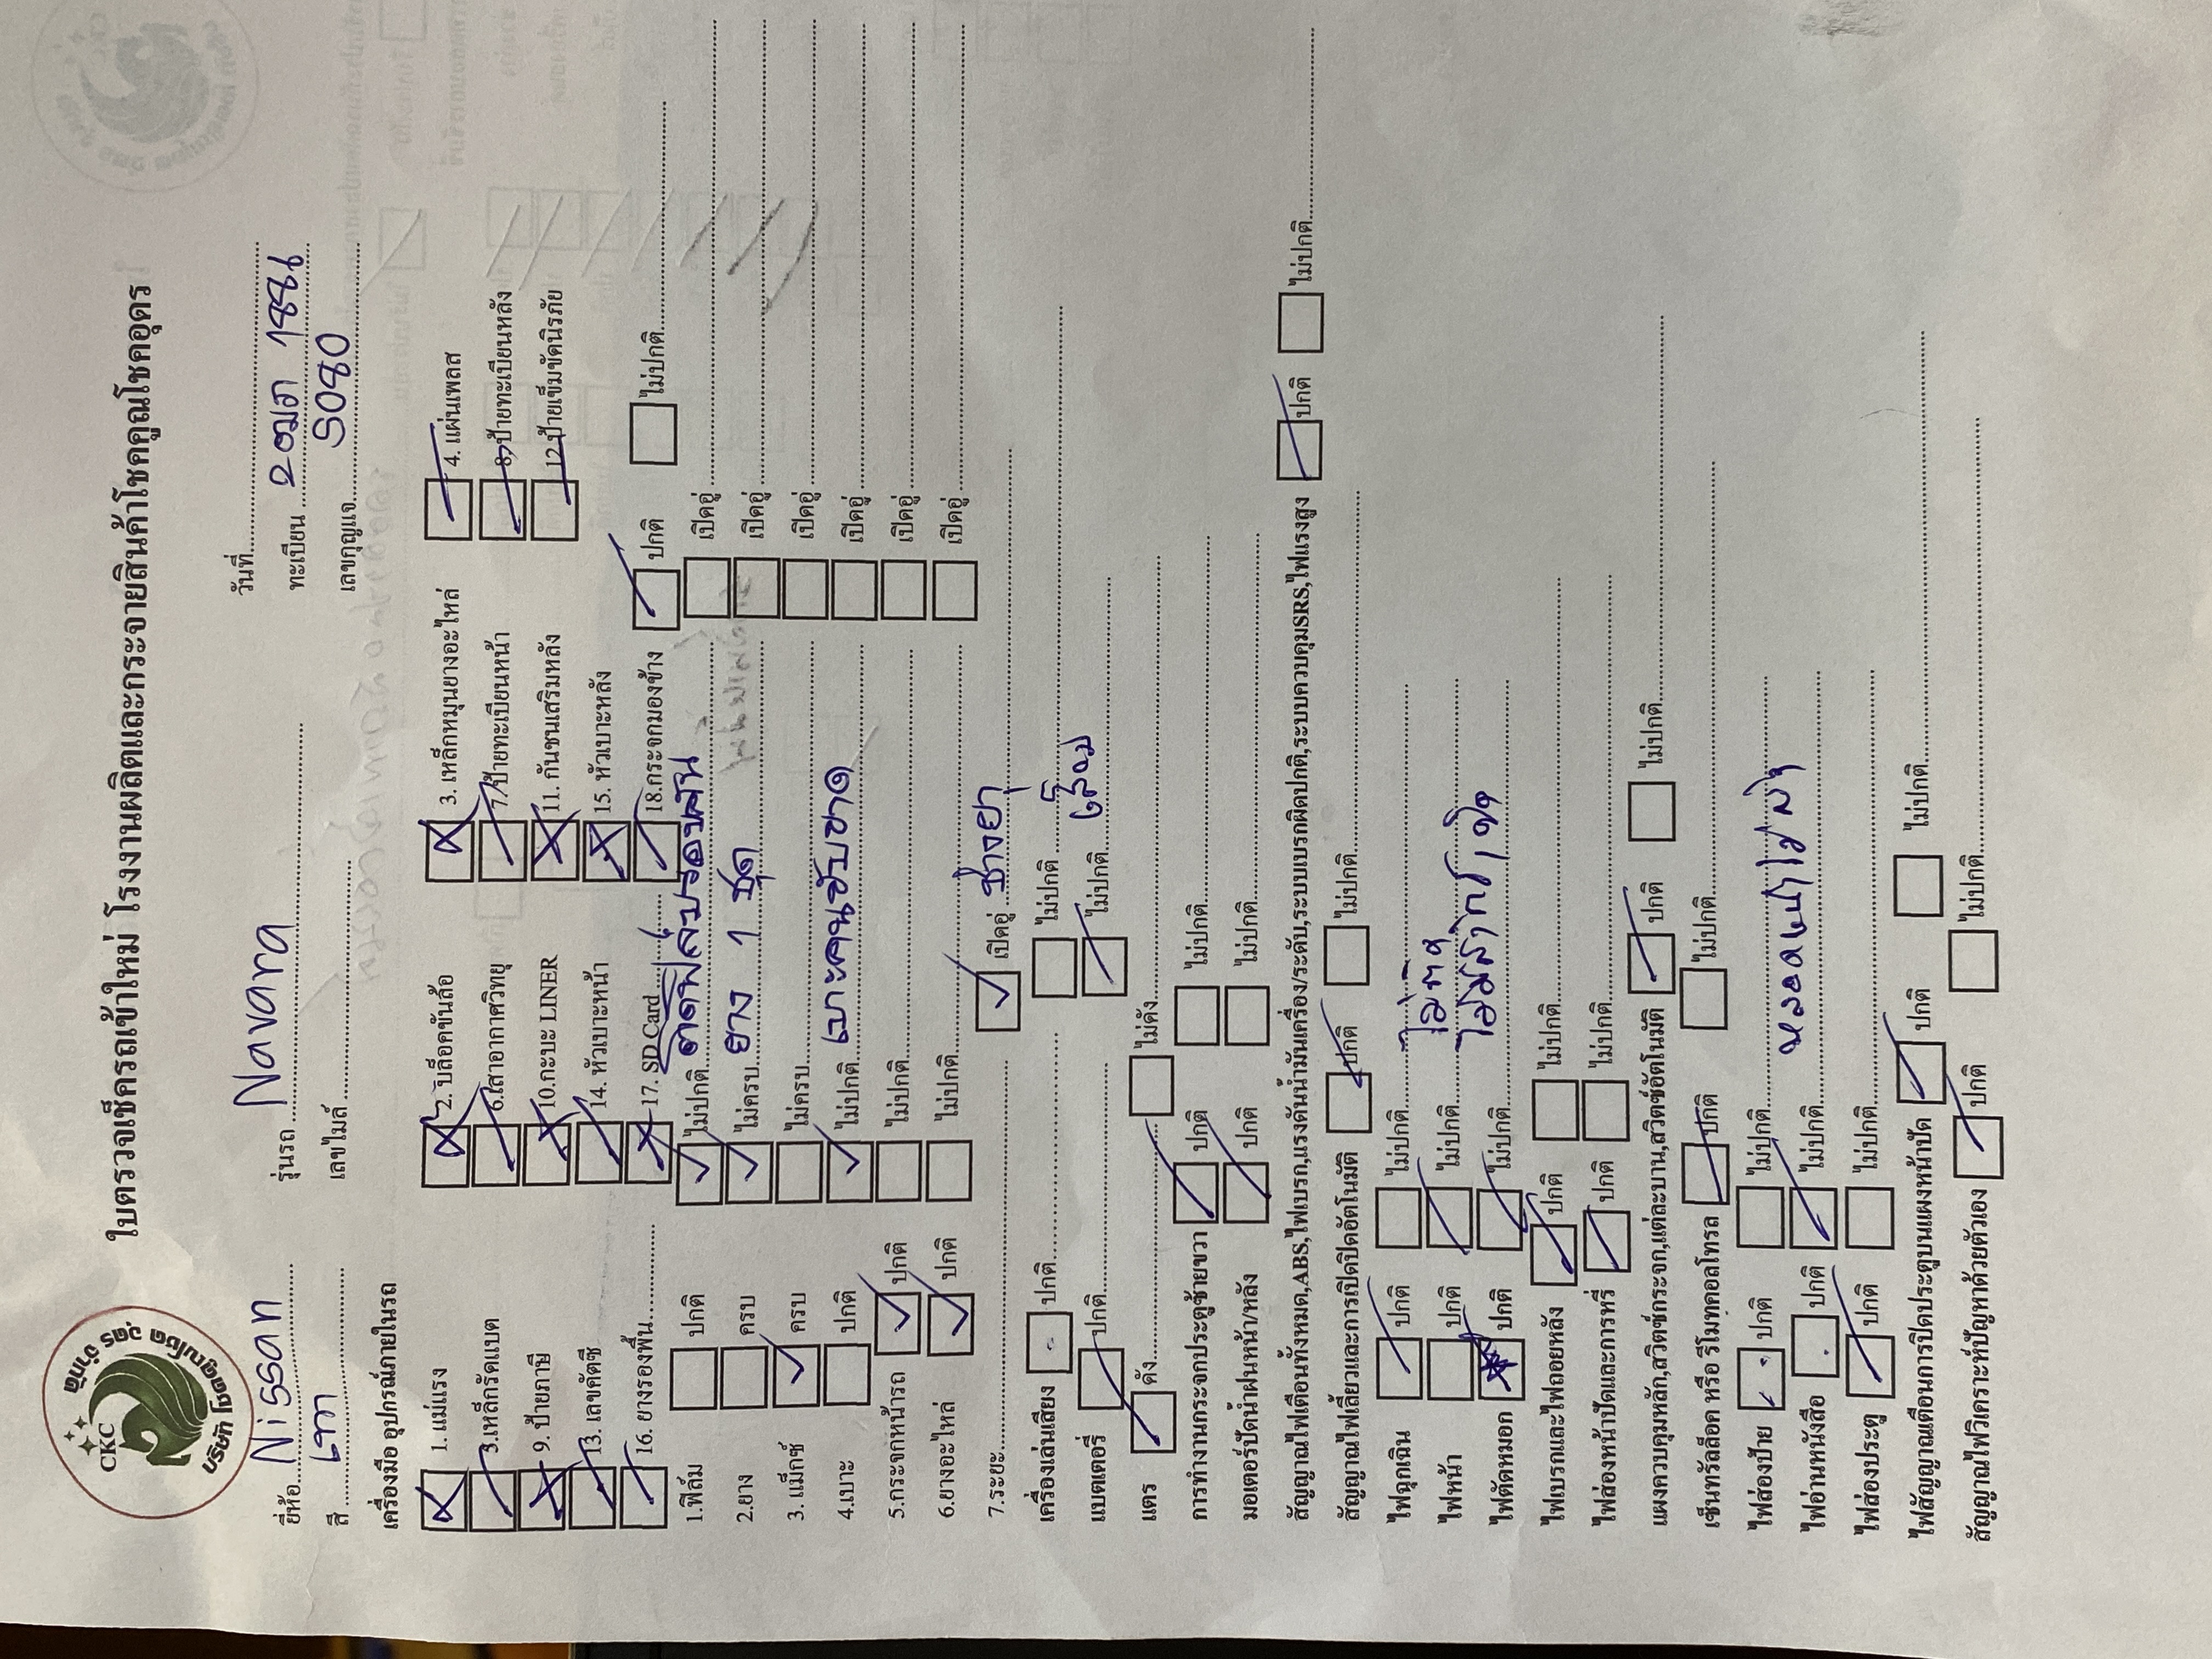 CKC
บริษัท โชคคูณโชค อุดร จำกัด
ใบตรวจเช็ครถเข้าใหม่ โรงงานผลิตและกระจายสินค้าโชคคูณโชคอุดร
วันที่
ยี่ห้อ Nissan รุ่นรถ Navara ทะเบียน 2ฒภ 1886
สี เทา เลขไมล์ เลขกุญแจ S080
เครื่องมือ อุปกรณ์ภายในรถ
1. แม่แรง 2. บล็อคขันล้อ 3. เหล็กหมุนยางอะไหล่ 4. แผ่นเพลส
5.เหล็กรัดแบต 6.เสาอากาศวิทยุ 7.ป้ายทะเบียนหน้า 8.ป้ายทะเบียนหลัง
9. ป้ายภาษี 10.กะบะ LINER 11. กันชนเสริมหลัง 12.ป้ายเข็มขัดนิรภัย
13. เลขคัตซี 14. หัวเบาะหน้า 15. หัวเบาะหลัง
16. ยางรองพื้น 17. SD Card 18.กระจกมองข้าง ปกติ ไม่ปกติ
1.ฟิล์ม ปกติ ไม่ปกติ ติดฟิล์มรอบคัน เปิดอู่
2.ยาง ครบ ไม่ครบ ยาง 1 ชุด เปิดอู่
3. แม็กซ์ ครบ ไม่ครบ เปิดอู่
4.เบาะ ปกติ ไม่ปกติ เบาะคนขับขาด เปิดอู่
5.กระจกหน้ารถ ปกติ ไม่ปกติ เปิดอู่
6.ยางอะไหล่ ปกติ ไม่ปกติ เปิดอู่
7.ระยะ เปิดอู่ ช่างยา
เครื่องเล่นเสียง ปกติ ไม่ปกติ
แบตเตอรี่ ปกติ ไม่ปกติ เสื่อม
แตร ดัง ไม่ดัง
การทำงานกระจกประตูซ้ายขวา ปกติ ไม่ปกติ
มอเตอร์ปัดน้ำฝนหน้า/หลัง ปกติ ไม่ปกติ
สัญญาณไฟเตือนทั้งหมด,ABS,ไฟเบรก,แรงดันน้ำมันเครื่อง/ระดับ,ระบบเบรกผิดปกติ,ระบบควบคุมSRS,ไฟแรงสูง ปกติ ไม่ปกติ
สัญญาณไฟเลี้ยวและการเปิดปิดอัตโนมัติ ปกติ ไม่ปกติ
ไฟฉุกเฉิน ปกติ ไม่ปกติ
ไฟหน้า ปกติ ไม่ปกติ ไม่ติด
ไฟตัดหมอก ปกติ ไม่ปกติ ไม่มีสวิทช์เปิด
ไฟเบรกและไฟถอยหลัง ปกติ ไม่ปกติ
ไฟส่องหน้าปัดและการหรี่ ปกติ ไม่ปกติ
แผงควบคุมหลัก,สวิตช์กระจก,แต่ละบาน,สวิตช์อัตโนมัติ ปกติ ไม่ปกติ
เซ็นทรัลล็อค หรือ รีโมทคอลโทรล ปกติ ไม่ปกติ
ไฟส่องป้าย ปกติ ไม่ปกติ
ไฟอ่านหนังสือ ปกติ ไม่ปกติ หลอดหน้าไม่สว่าง
ไฟส่องประตู ปกติ ไม่ปกติ
ไฟสัญญาณเตือนการปิดประตูบนแผงหน้าปัด ปกติ ไม่ปกติ
สัญญาณไฟวิเคราะห์ปัญหาด้วยตัวเอง ปกติ ไม่ปกติ